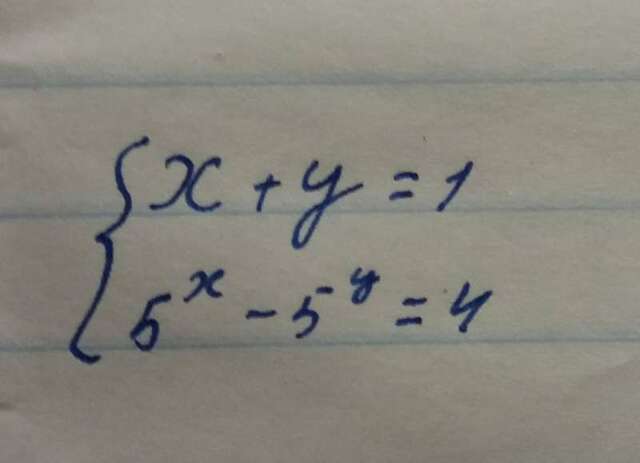 {x + y = 1
5^x - 5^y = 4